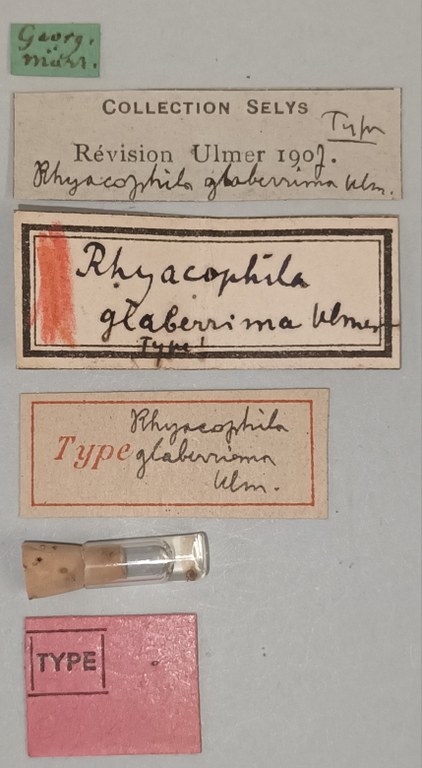 Georg.
COLLECTION SELYS
Type
Révision Ulmer 1907.
Rhyacophila glaberrima Ulm.
Rhyacophila
glaberrima Ulmer
Type!
Rhyacophila
Type glaberrima
Ulm.
TYPE